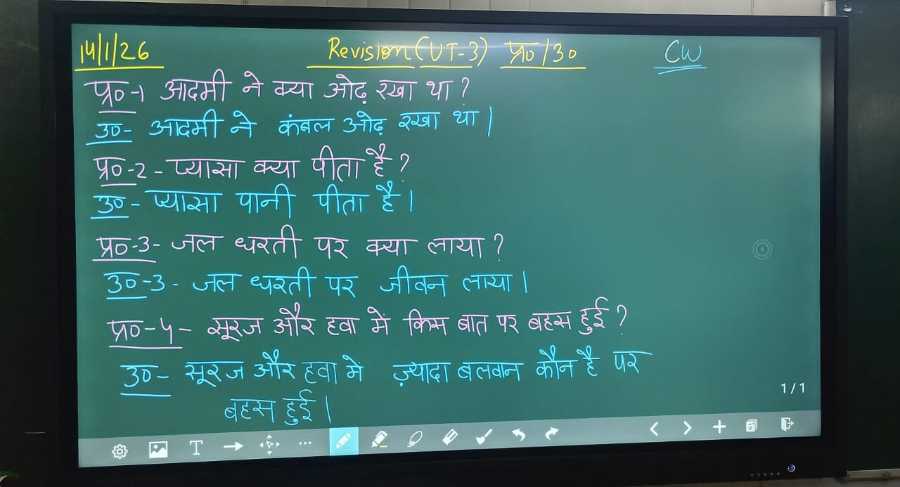 14/1/26 Revision (UT-3) प्र० / उ० CW
प्र०-1 आदमी ने क्या ओढ़ रखा था ?
उ०- आदमी ने कंबल ओढ़ रखा था |
प्र०-2 - प्यासा क्या पीता है ?
उ० - प्यासा पानी पीता है |
प्र०-3- जल धरती पर क्या लाया ?
उ०-3 - जल धरती पर जीवन लाया |
प्र०-4- सूरज और हवा में किस बात पर बहस हुई ?
उ०- सूरज और हवा मे ज़्यादा बलवान कौन है पर
बहस हुई |
1/1
T